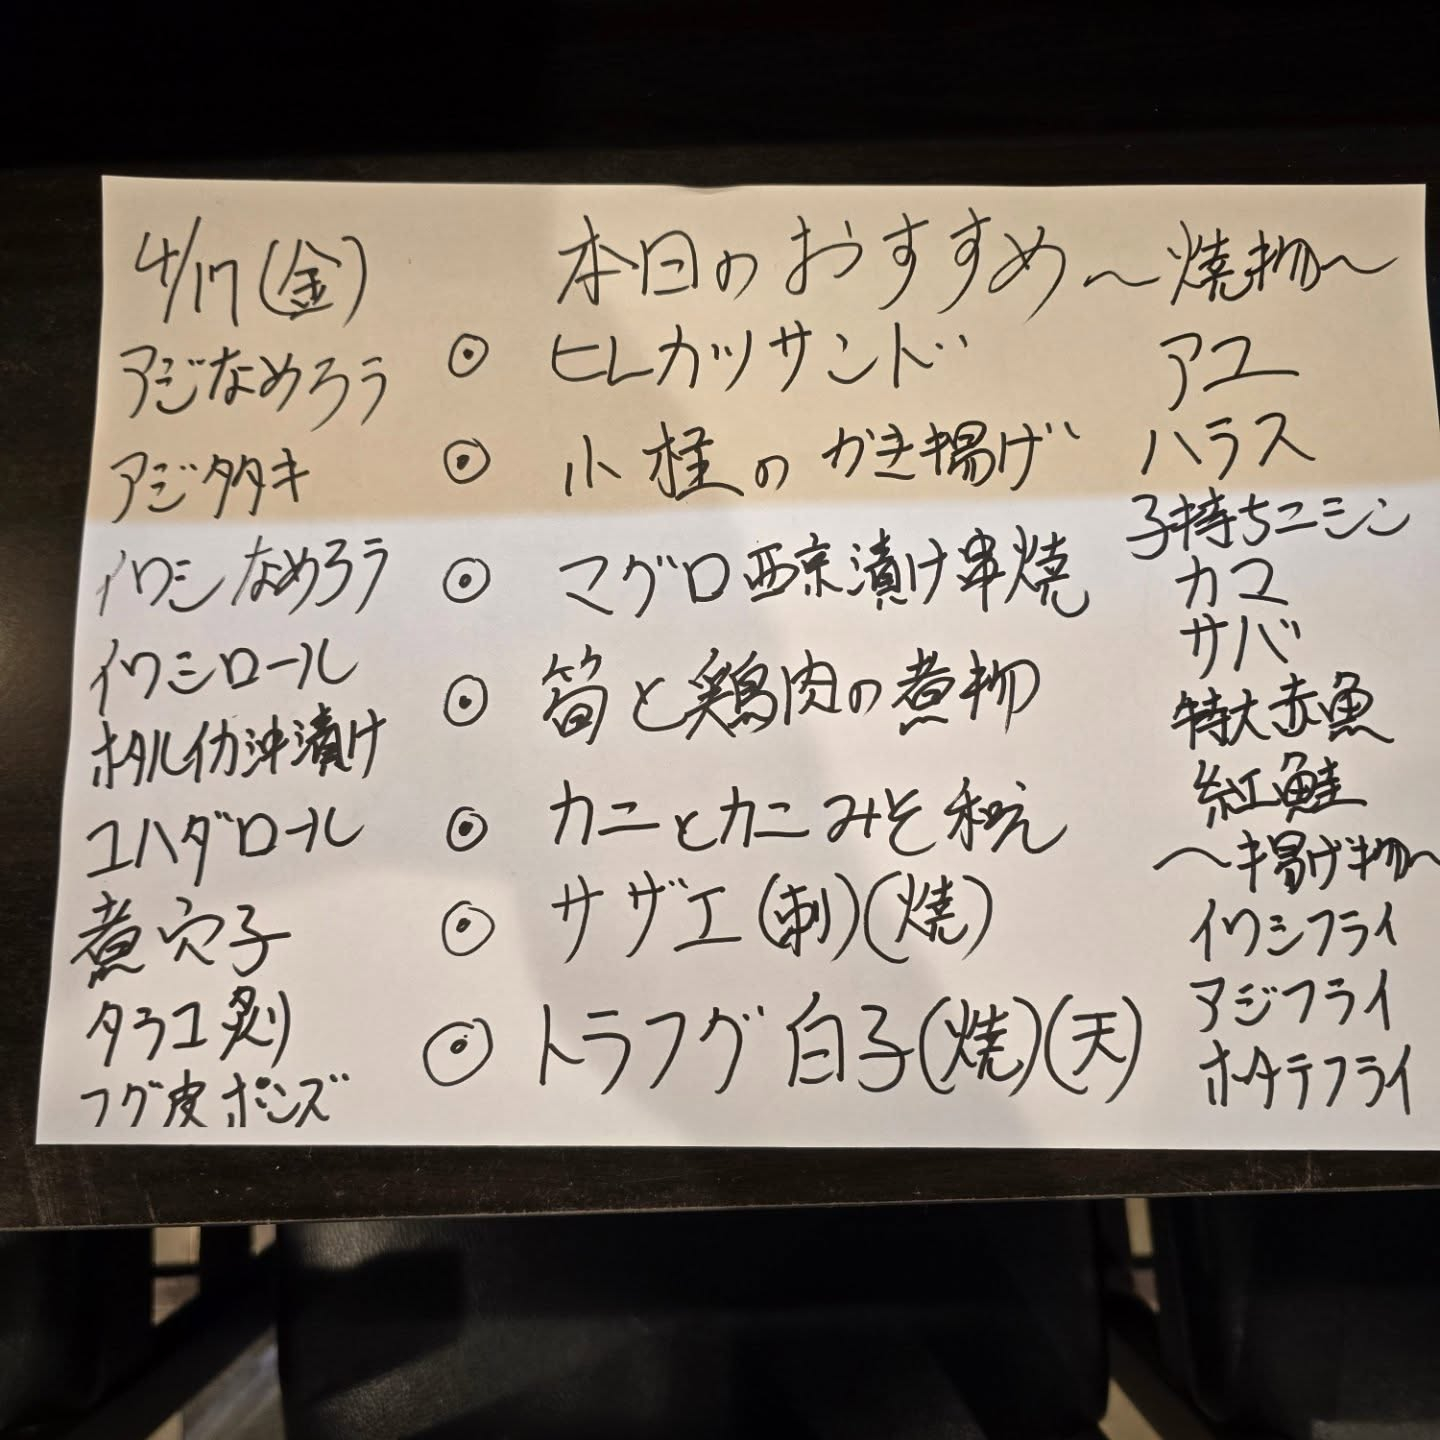 4/17(金)
アジなめろう
アジタタキ
イワシなめろう
イワシロール
ホタルイカ沖漬け
ユハダロール
煮穴子
タラコ炙り
フグ皮ポンズ
本日のおすすめ
◎ ヒレカツサンド
◎ 小柱のかき揚げ
◎ マグロ西京漬け串焼
◎ 筍と鶏肉の煮物
◎ カニとカニみそ和え
◎ サザエ(刺)(焼)
◎ トラフグ白子(焼)(天)
〜焼物〜
アユ
ハラス
子持ちニシン
カマ
サバ
特大赤魚
紅鮭
〜揚げ物〜
イワシフライ
アジフライ
ホタテフライ